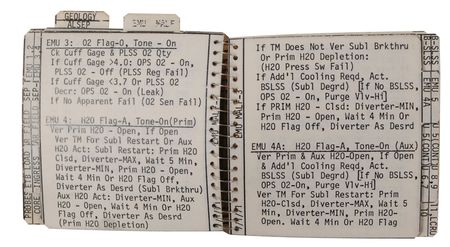 GEOLOGY
ALSEP
EMU MALF
EMU 3: O2 Flag-O, Tone - On
Ck Cuff Gage & PLSS O2 Qty
If Cuff Gage >4.0: OPS O2 - On,
PLSS O2 - Off (PLSS Reg Fail)
If Cuff Gage <3.7 Or PLSS O2
Decr: OPS O2 - On (Leak)
If No Apparent Fail (O2 Sen Fail)
EMU 4: H2O Flag-A, Tone-On(Prim)
Ver Prim H2O - Open, If Open
Ver TM For Subl Restart Or Aux
H2O Act: Subl Restart: Prim H2O
Clsd, Diverter-MAX, Wait 5 Min,
Diverter-MIN, Prim H2O - Open,
Wait 4 Min Or H2O Flag Off,
Diverter As Desrd (Subl Brkthru)
Aux H2O Act: Diverter-MIN, Aux
H2O - Open, Wait 4 Min Or H2O
Flag Off, Diverter As Desrd
(Prim H2O Depletion)
EMU MALF-3
If TM Does Not Ver Subl Brkthru
Or Prim H2O Depletion:
(H2O Press Sw Fail)
If Add'l Cooling Reqd, Act.
BSLSS (Subl Degrd) [If No BSLSS,
OPS O2 - On, Purge Vlv-Hi]
If PRIM H2O - Clsd: Diverter-MIN,
Prim H2O - Open, Wait 4 Min Or
H2O Flag Off, Diverter As Desrd
EMU 4A: H2O Flag-A, Tone-On (Aux)
Ver Prim & Aux H2O-Open, If Open
If Add'l Cooling Reqd, Act.
BSLSS (Subl Degrd) [If No BSLSS,
OPS O2-On, Purge Vlv-Hi]
Ver TM For Subl Restart: Prim
H2O-Clsd, Diverter-MAX, Wait 5
Min, Diverter-MIN, Prim H2O-
Open, Wait 4 Min Or H2O Flag
Off, Diverter As Desrd